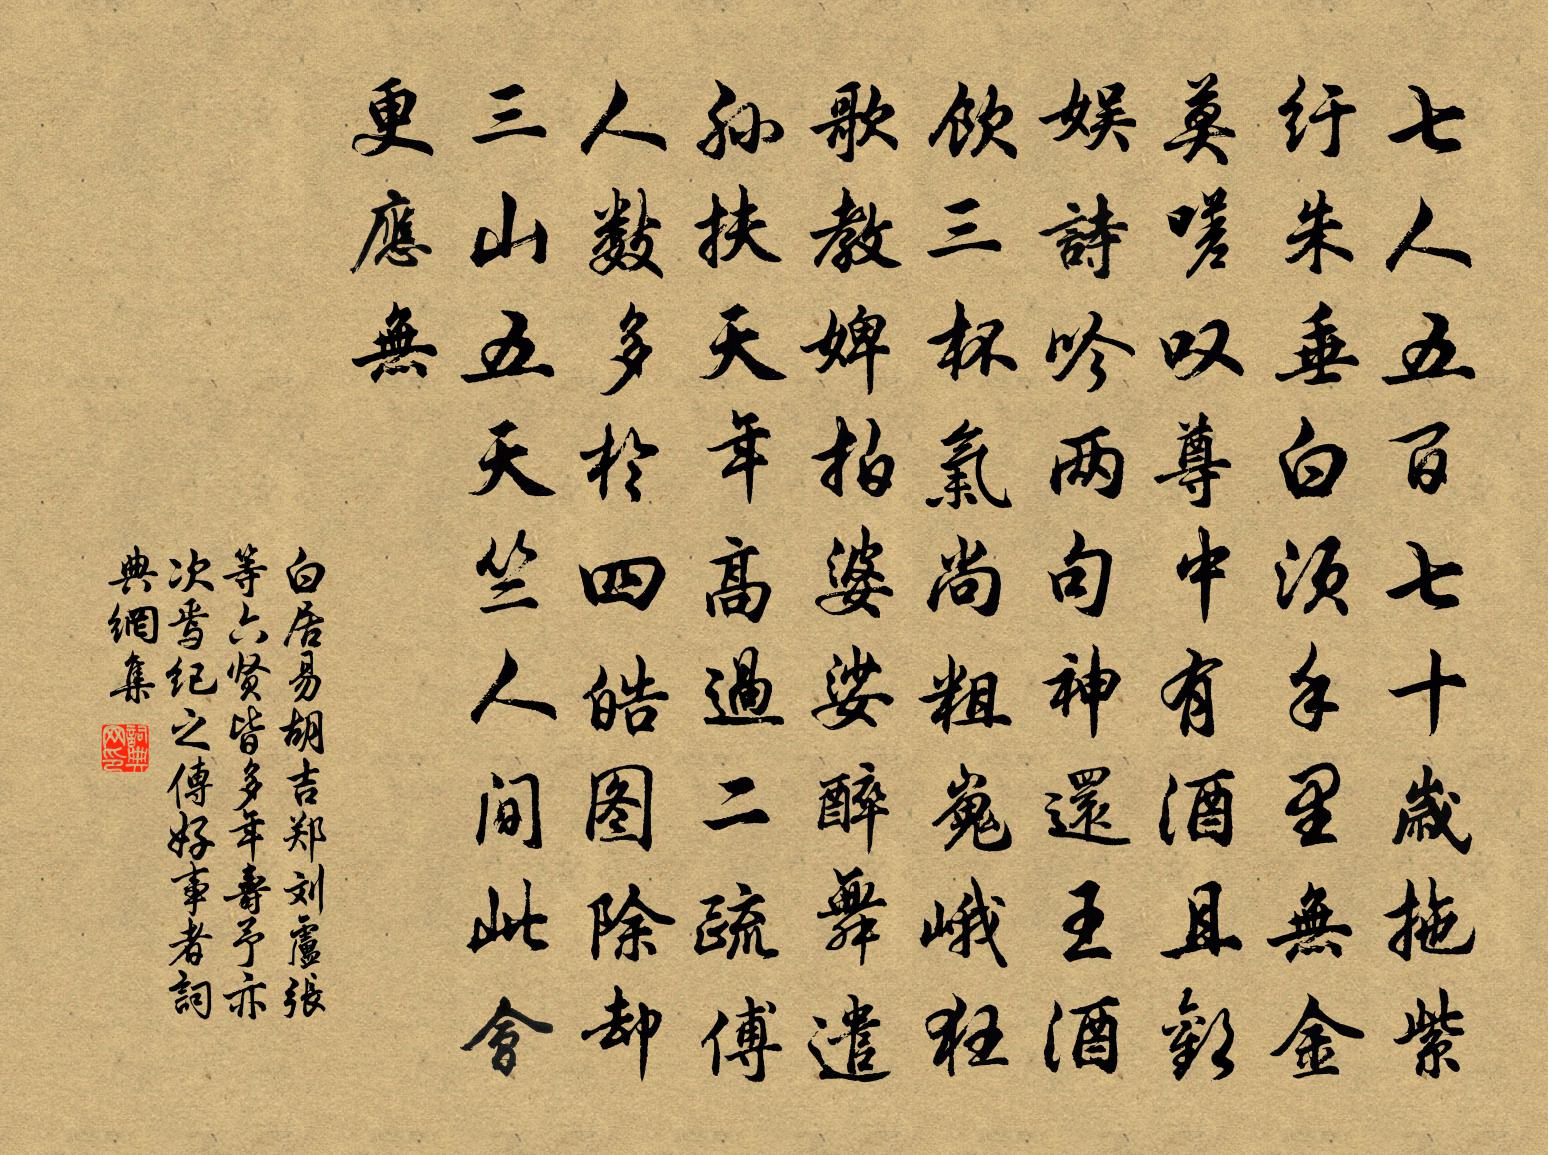 七人五百七十歲拖紫
纡朱垂白须手里無金
莫嗟叹尊中有酒且歡
娱詩吟两句神還王酒
飲三杯氣尚粗嵬峨狂
歌教婢拍婆娑醉舞遣
孙扶天年高過二疏傅
人數多於四皓图除却
三山五天竺人間此會
更應無
白居易胡吉郑刘盧張
等六贤皆多年壽予亦
次焉纪之傳好事者詞
典網集
詞典网印